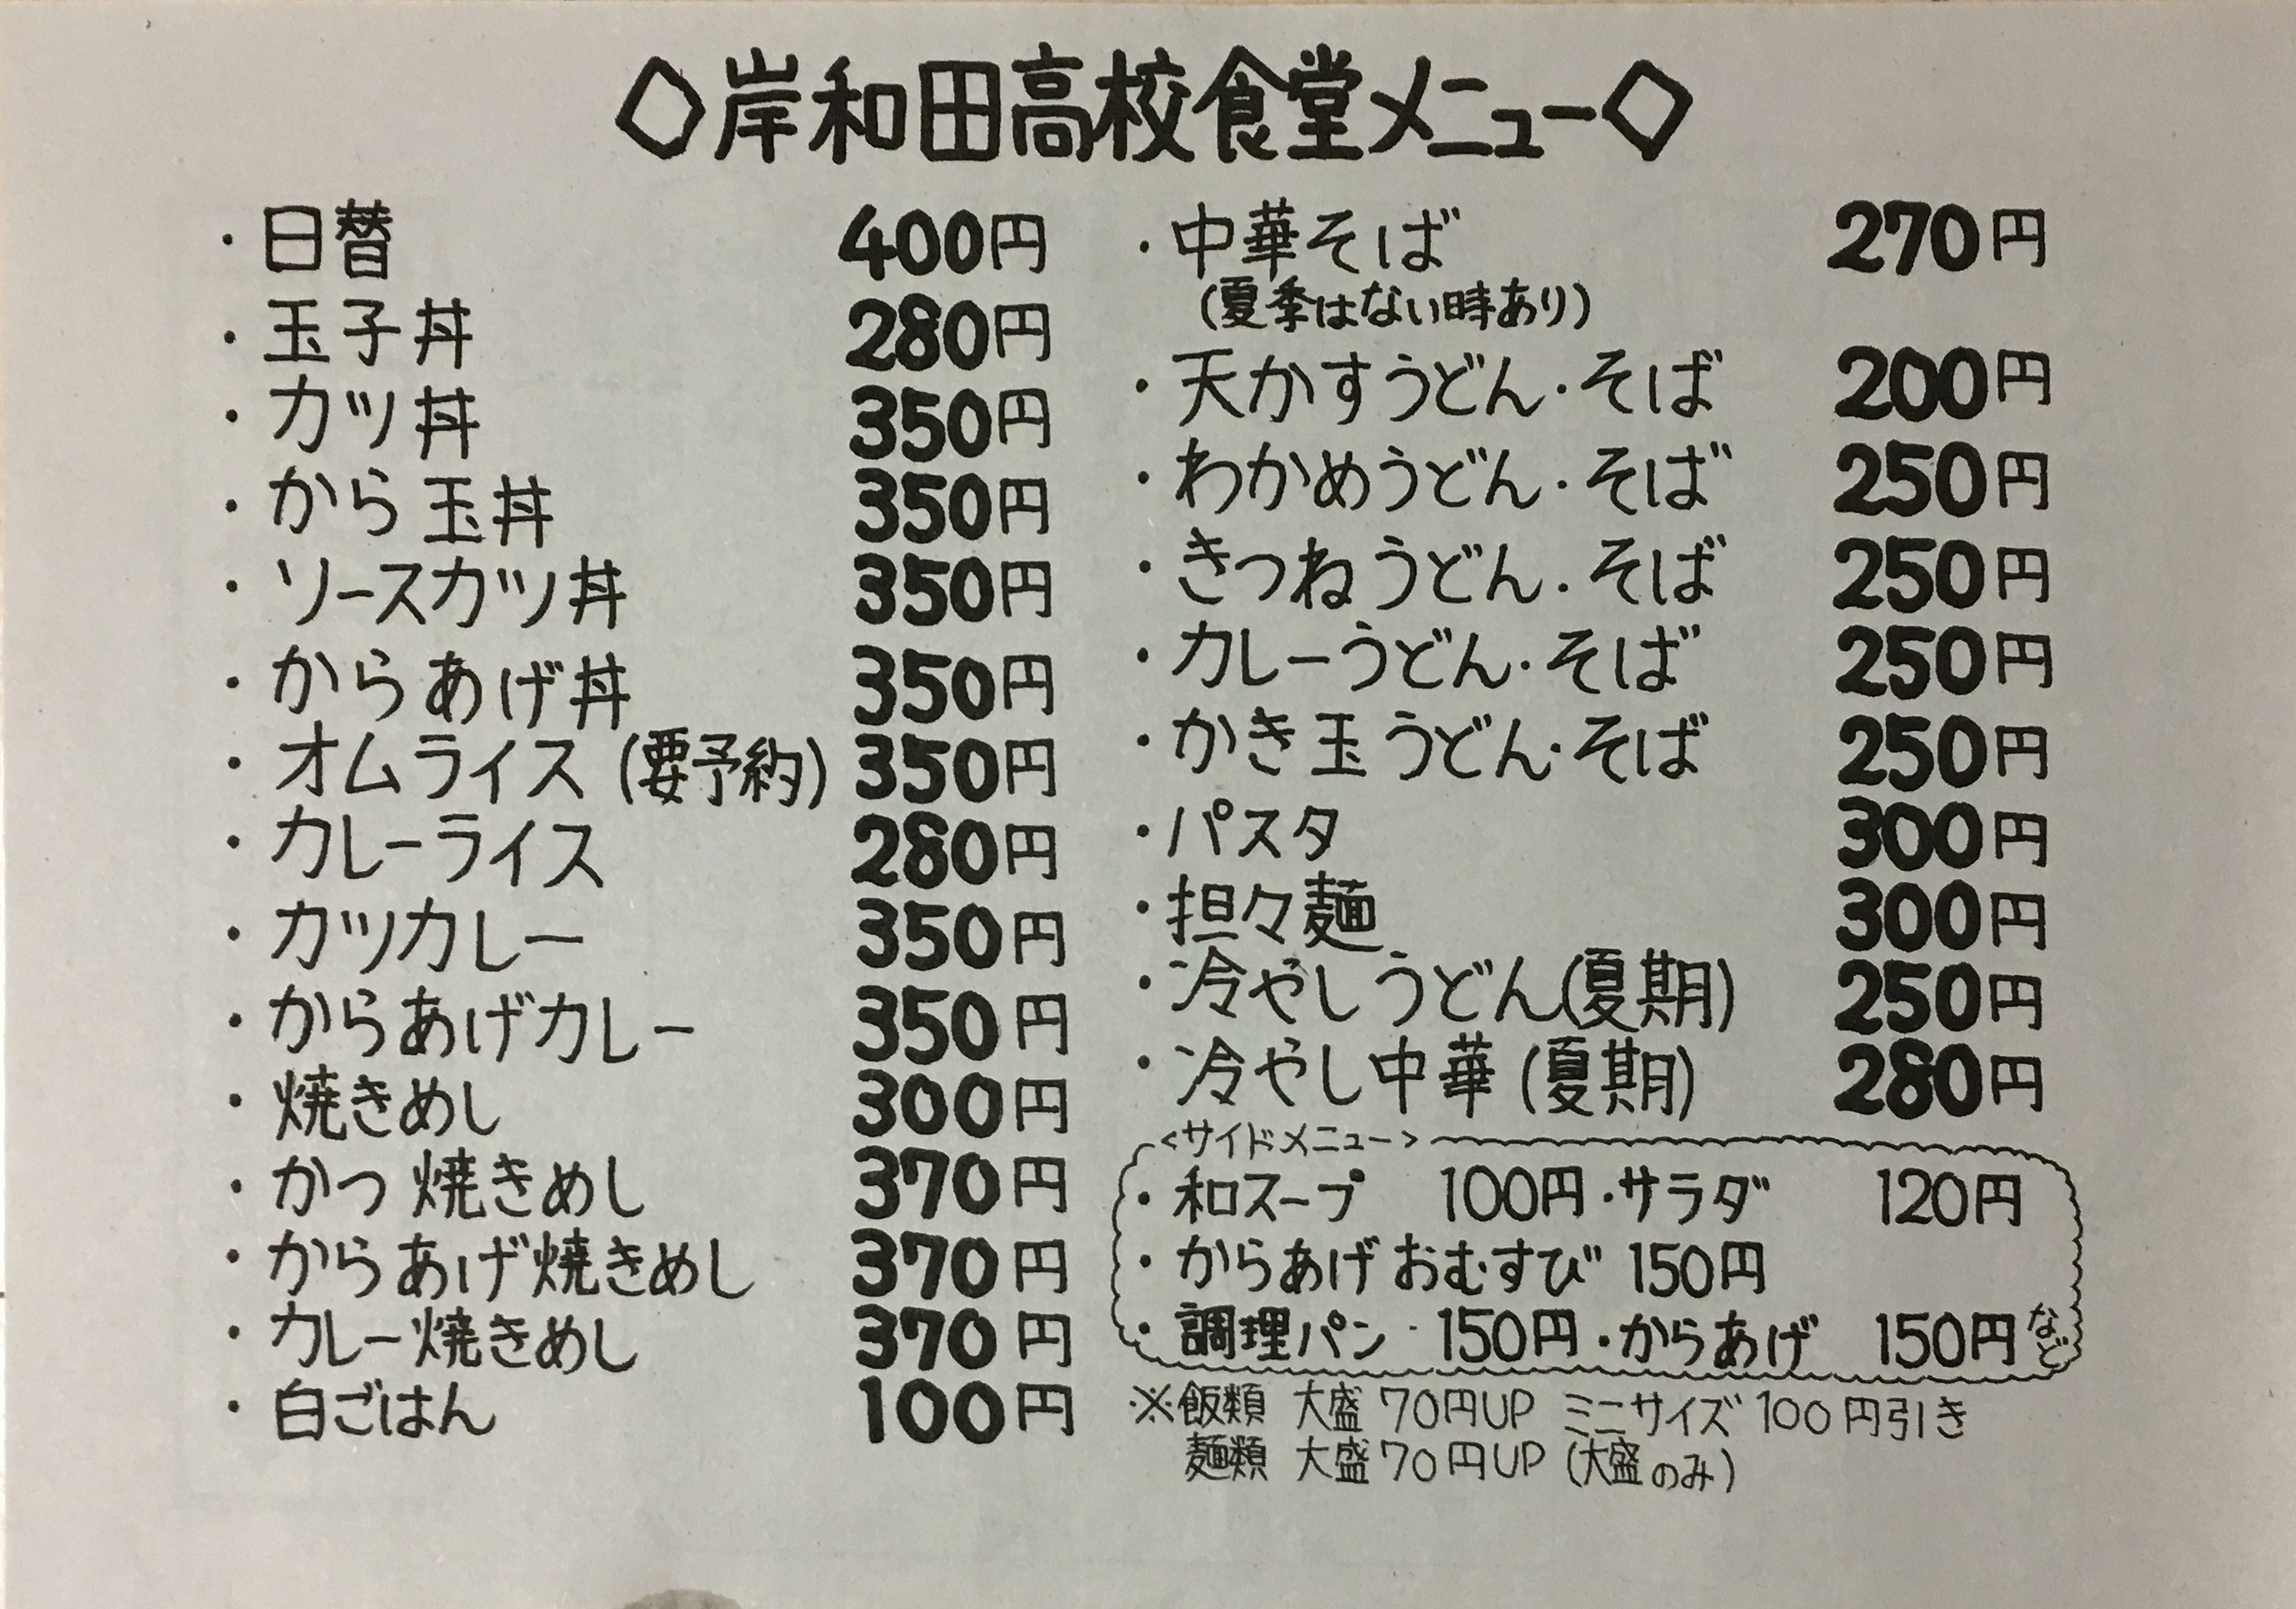 ◇岸和田高校食堂メニュー◇
・日替 400円
・玉子丼 280円
・カツ丼 350円
・から玉丼 350円
・ソースカツ丼 350円
・からあげ丼 350円
・オムライス (要予約) 350円
・カレーライス 280円
・カツカレー 350円
・からあげカレー 350円
・焼きめし 300円
・かつ焼きめし 370円
・からあげ焼きめし 370円
・カレー焼きめし 370円
・白ごはん 100円
・中華そば 270円
(夏季はない時あり)
・天かすうどん・そば 200円
・わかめうどん・そば 250円
・きつねうどん・そば 250円
・カレーうどん・そば 250円
・かき玉うどん・そば 250円
・パスタ 300円
・担々麺 300円
・冷やしうどん(夏期) 250円
・冷やし中華(夏期) 280円
<サイドメニュー>
・和スープ 100円・サラダ 120円
・からあげおむすび 150円
・調理パン 150円・からあげ 150円など
※飯類 大盛70円UP ミニサイズ100円引き
麺類 大盛70円UP (大盛のみ)